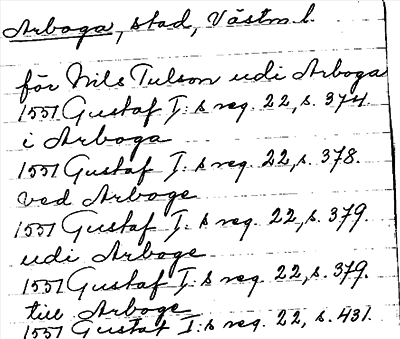 Arboga, stad, Västm.l.
för Nils Tulson udi Arboga
1551 Gustaf I:s reg. 22, s. 374.
i Arboga
1551 Gustaf I:s reg. 22, s. 378.
ved Arboge
1551 Gustaf I:s reg. 22, s. 379.
udi Arboge
1551 Gustaf I:s reg. 22, s. 379.
till Arboge
1551 Gustaf I:s reg. 22, s. 431.